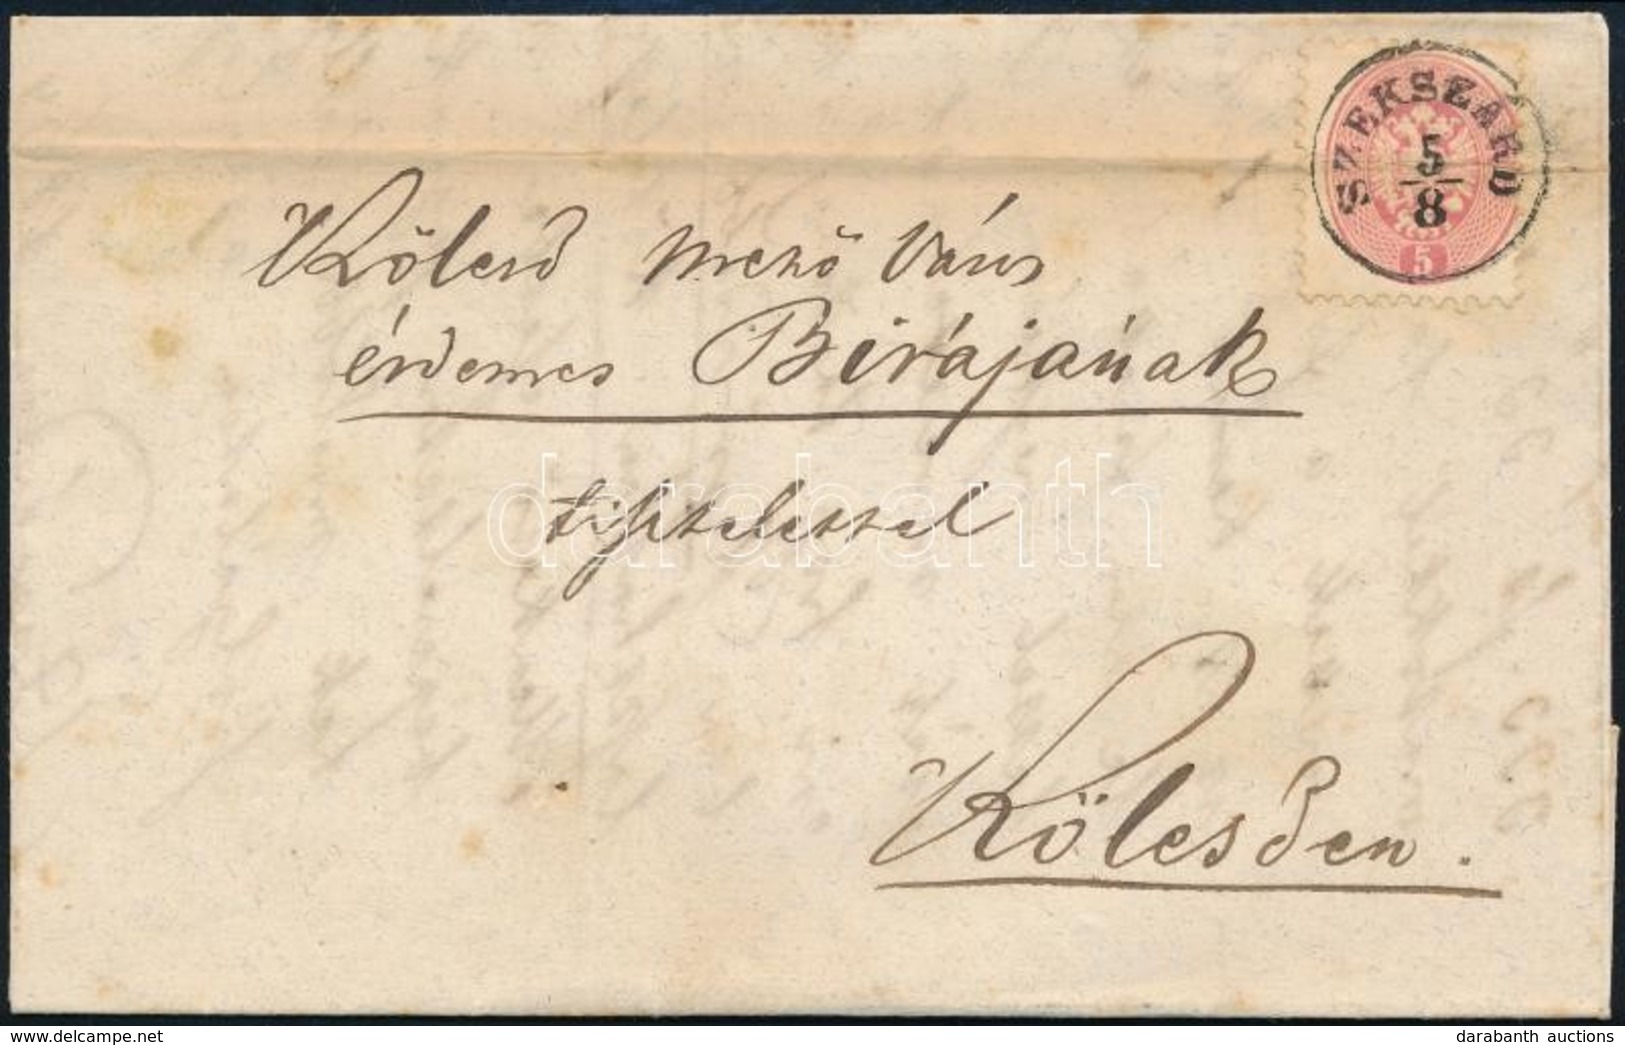 SZEKSZARD
5
8
5
Kölesd mező Város
érdemes Birájának
tisztelettel
darabanth
Kölesden.
www.darabanth.com
darabanth auctions